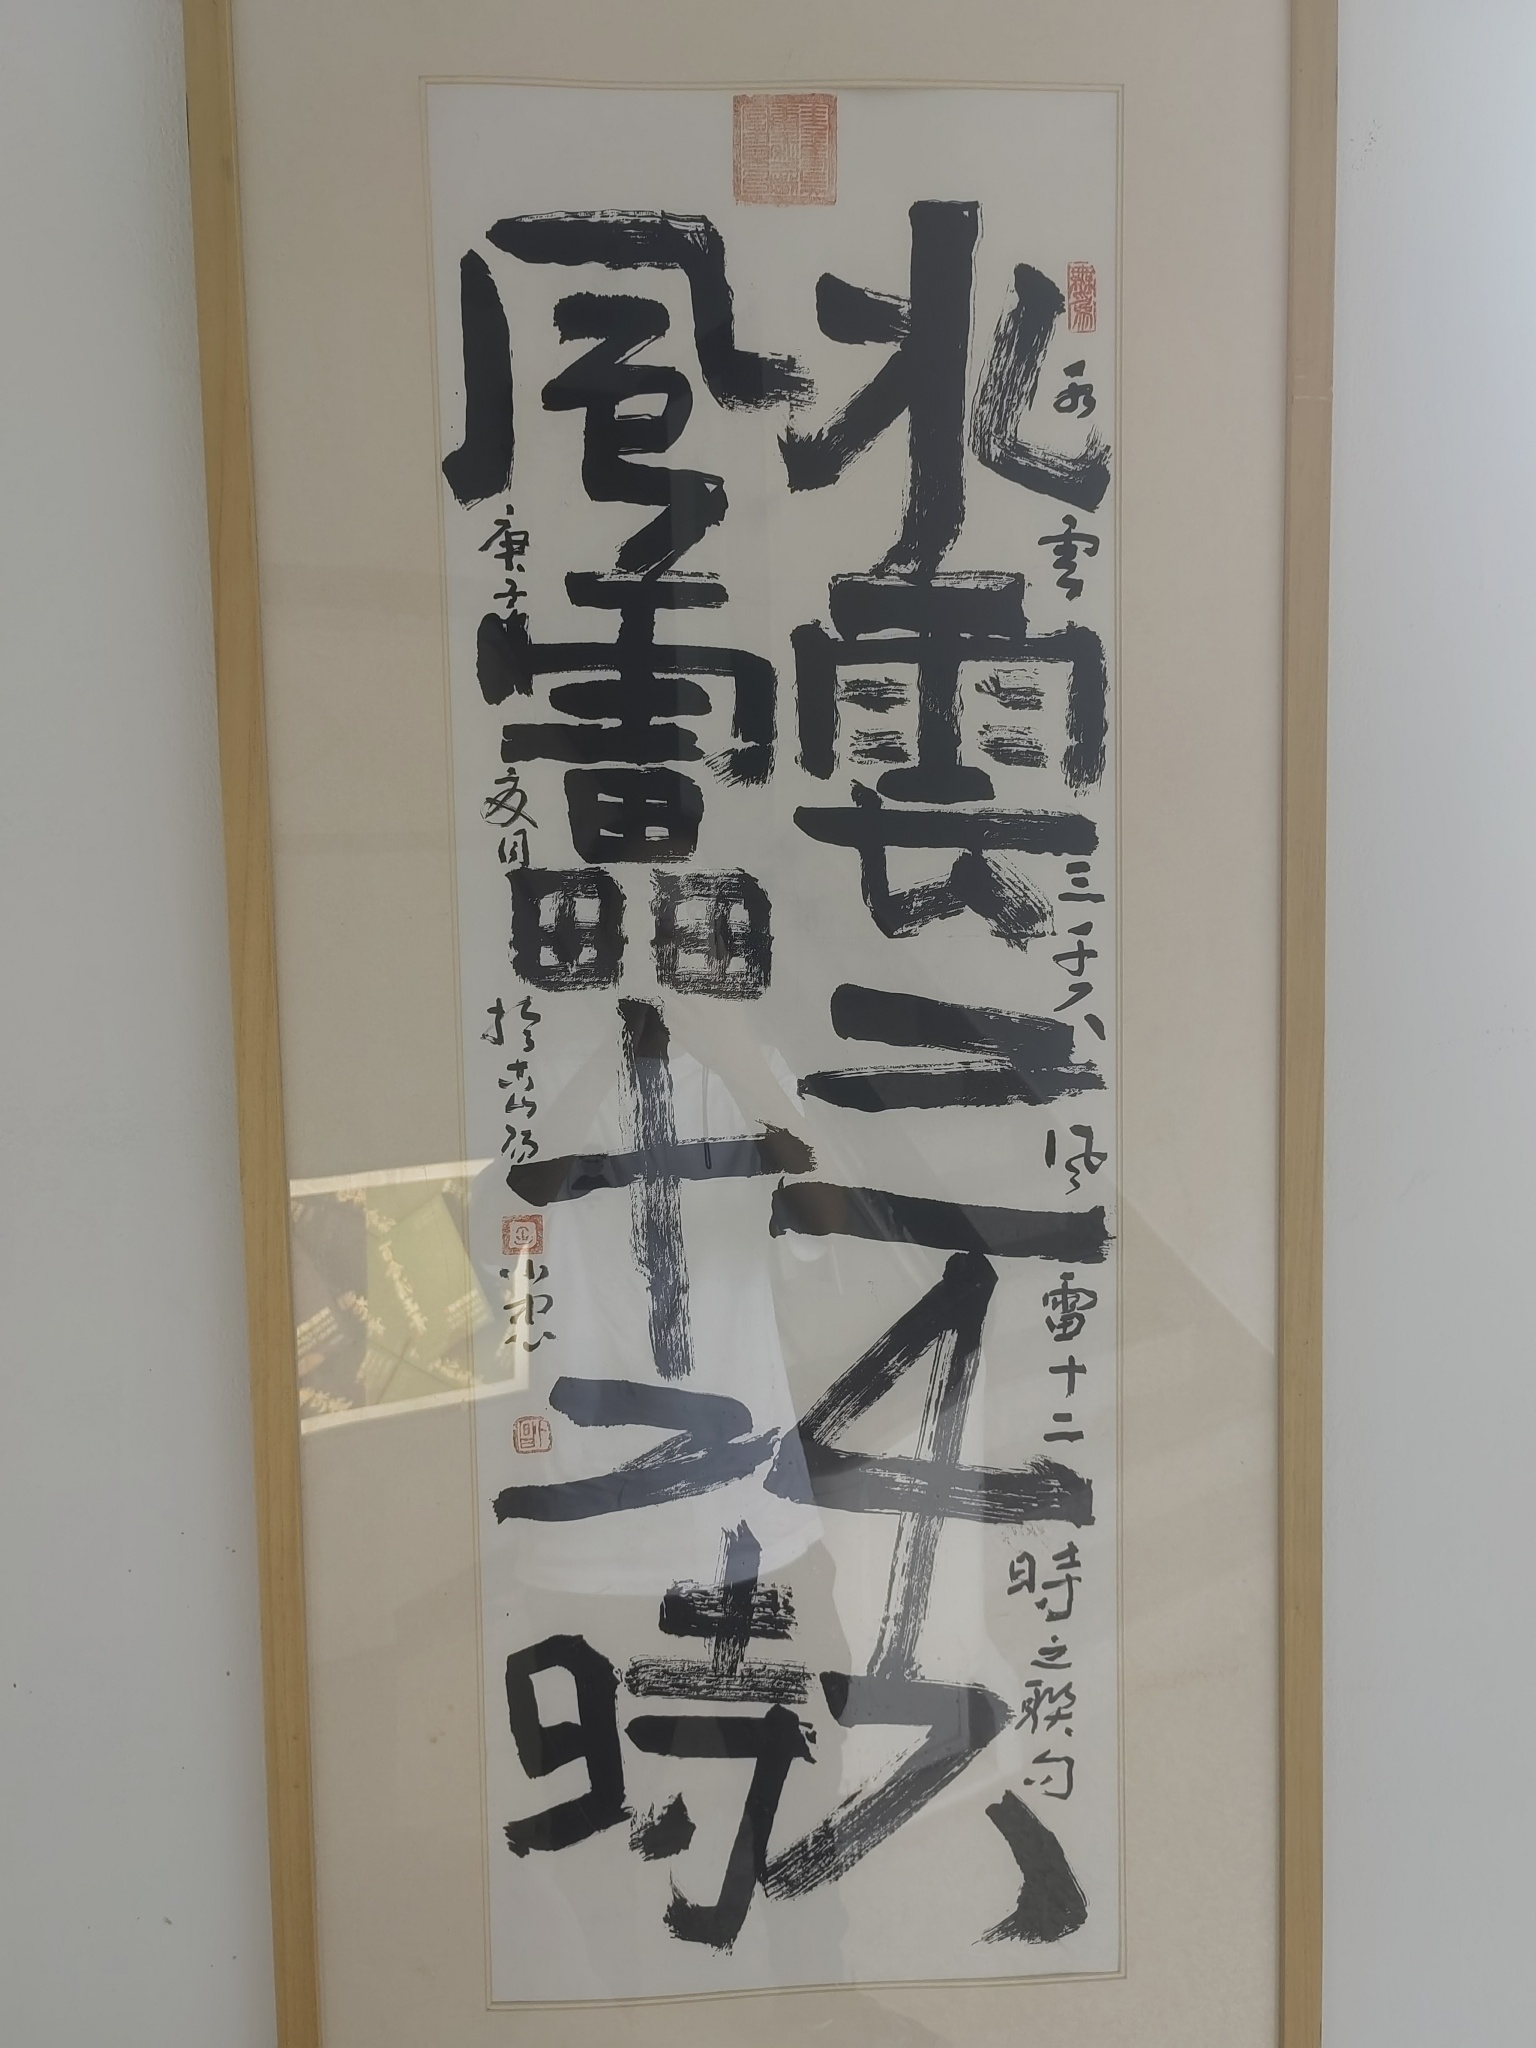 水雲三千八
風雷十二時
水雲三千八風雷十二時之聯句
庚子 夏月 於 小忠